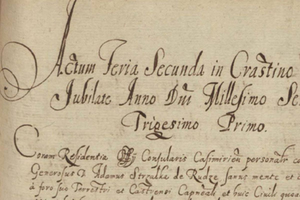 Actum Feria Secunda in Crastino
Jubilate Anno Dni Millesimo Se
Trigesimo Primo.
Coram Residentia Consularis Casimirien personalr
Generosus D Adamus de Rudze sanus mente et
a foro suo Terrestri et Castren et huic Civili quoad